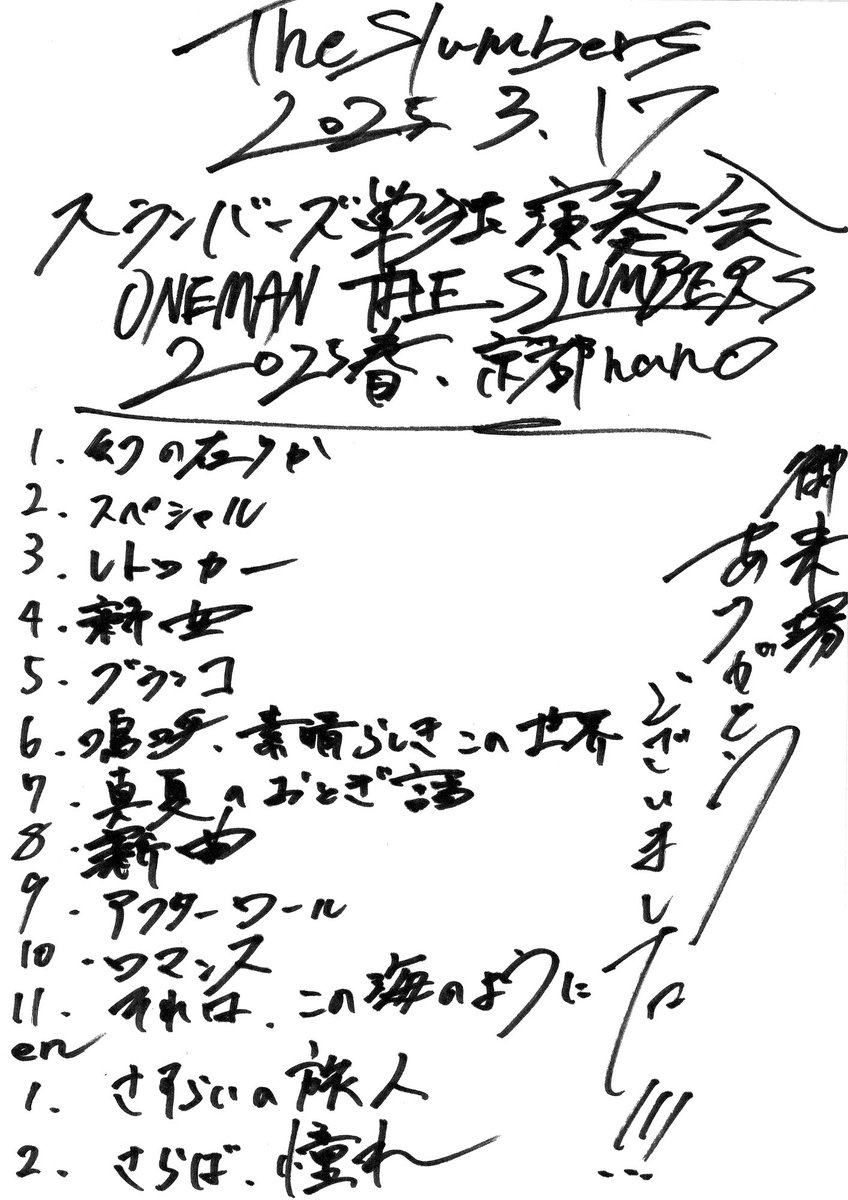 The Slumbers
2025 3.17
スランバーズ単独演奏会
ONEMAN THE SLUMBERS
2025春、京都nano
1. 幻の在りか
2. スペシャル
3. レトッカー
4. 新曲
5. ブランコ
6. 嗚呼、素晴らしきこの世界
7. 真夏のおとぎ話
8. 新曲
9. アフターワール
10. ロマンス
11. それは、この海のように
en
1. さすらいの旅人
2. さらば、憧れ
御来場
ありがとう
ございました!!!